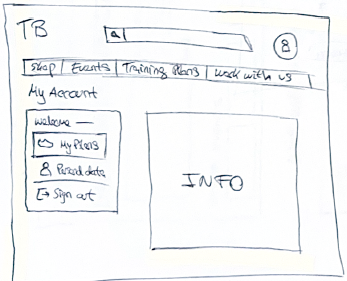 TB
Shop | Events | Training Plans | Work with us
My Account
welcome —
My Plans
Personal data
Sign out
INFO